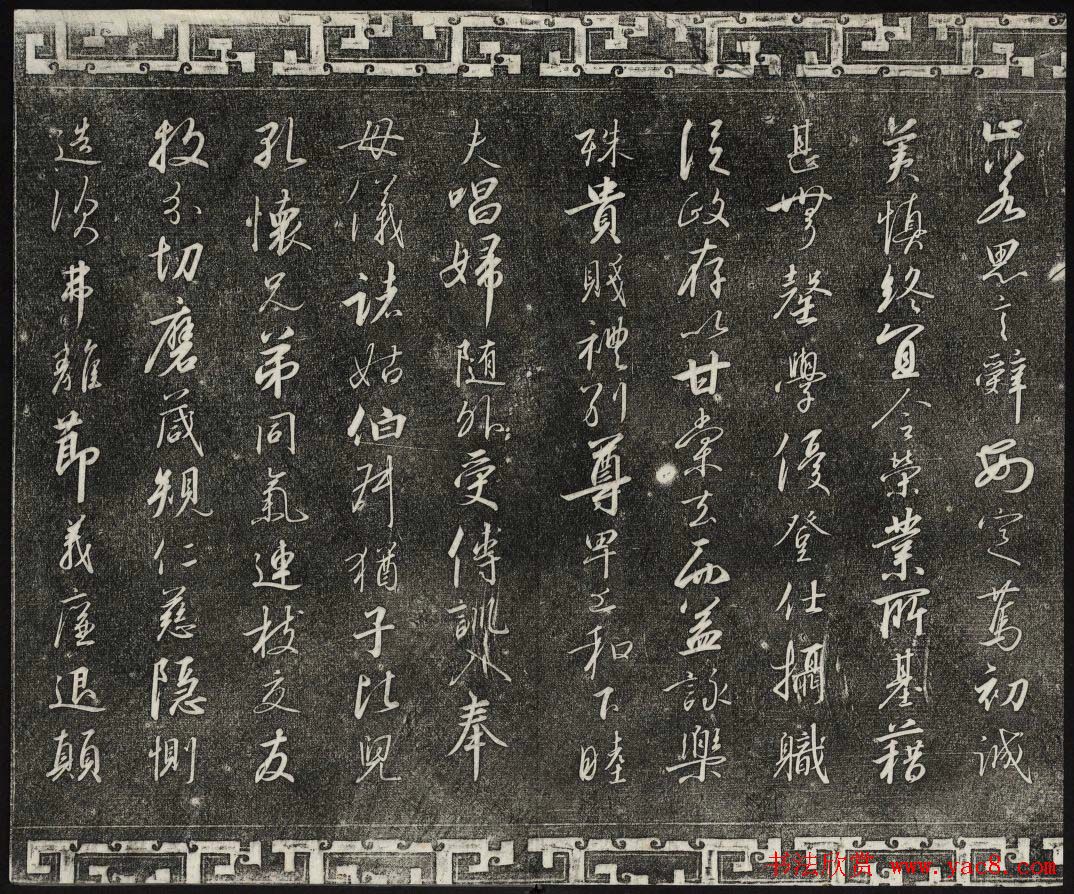 止若思言辭安定篤初誠
美慎終宜令榮業所基藉
甚無竟學優登仕攝職
從政存以甘棠去而益詠樂
殊貴賤禮別尊卑上和下睦
夫唱婦随外受傅訓入奉
母儀諸姑伯叔猶子比兒
孔懷兄弟同氣連枝交友
投分切磨箴規仁慈隐惻
造次弗離節義廉退顛
书法欣赏 www.yac8.com